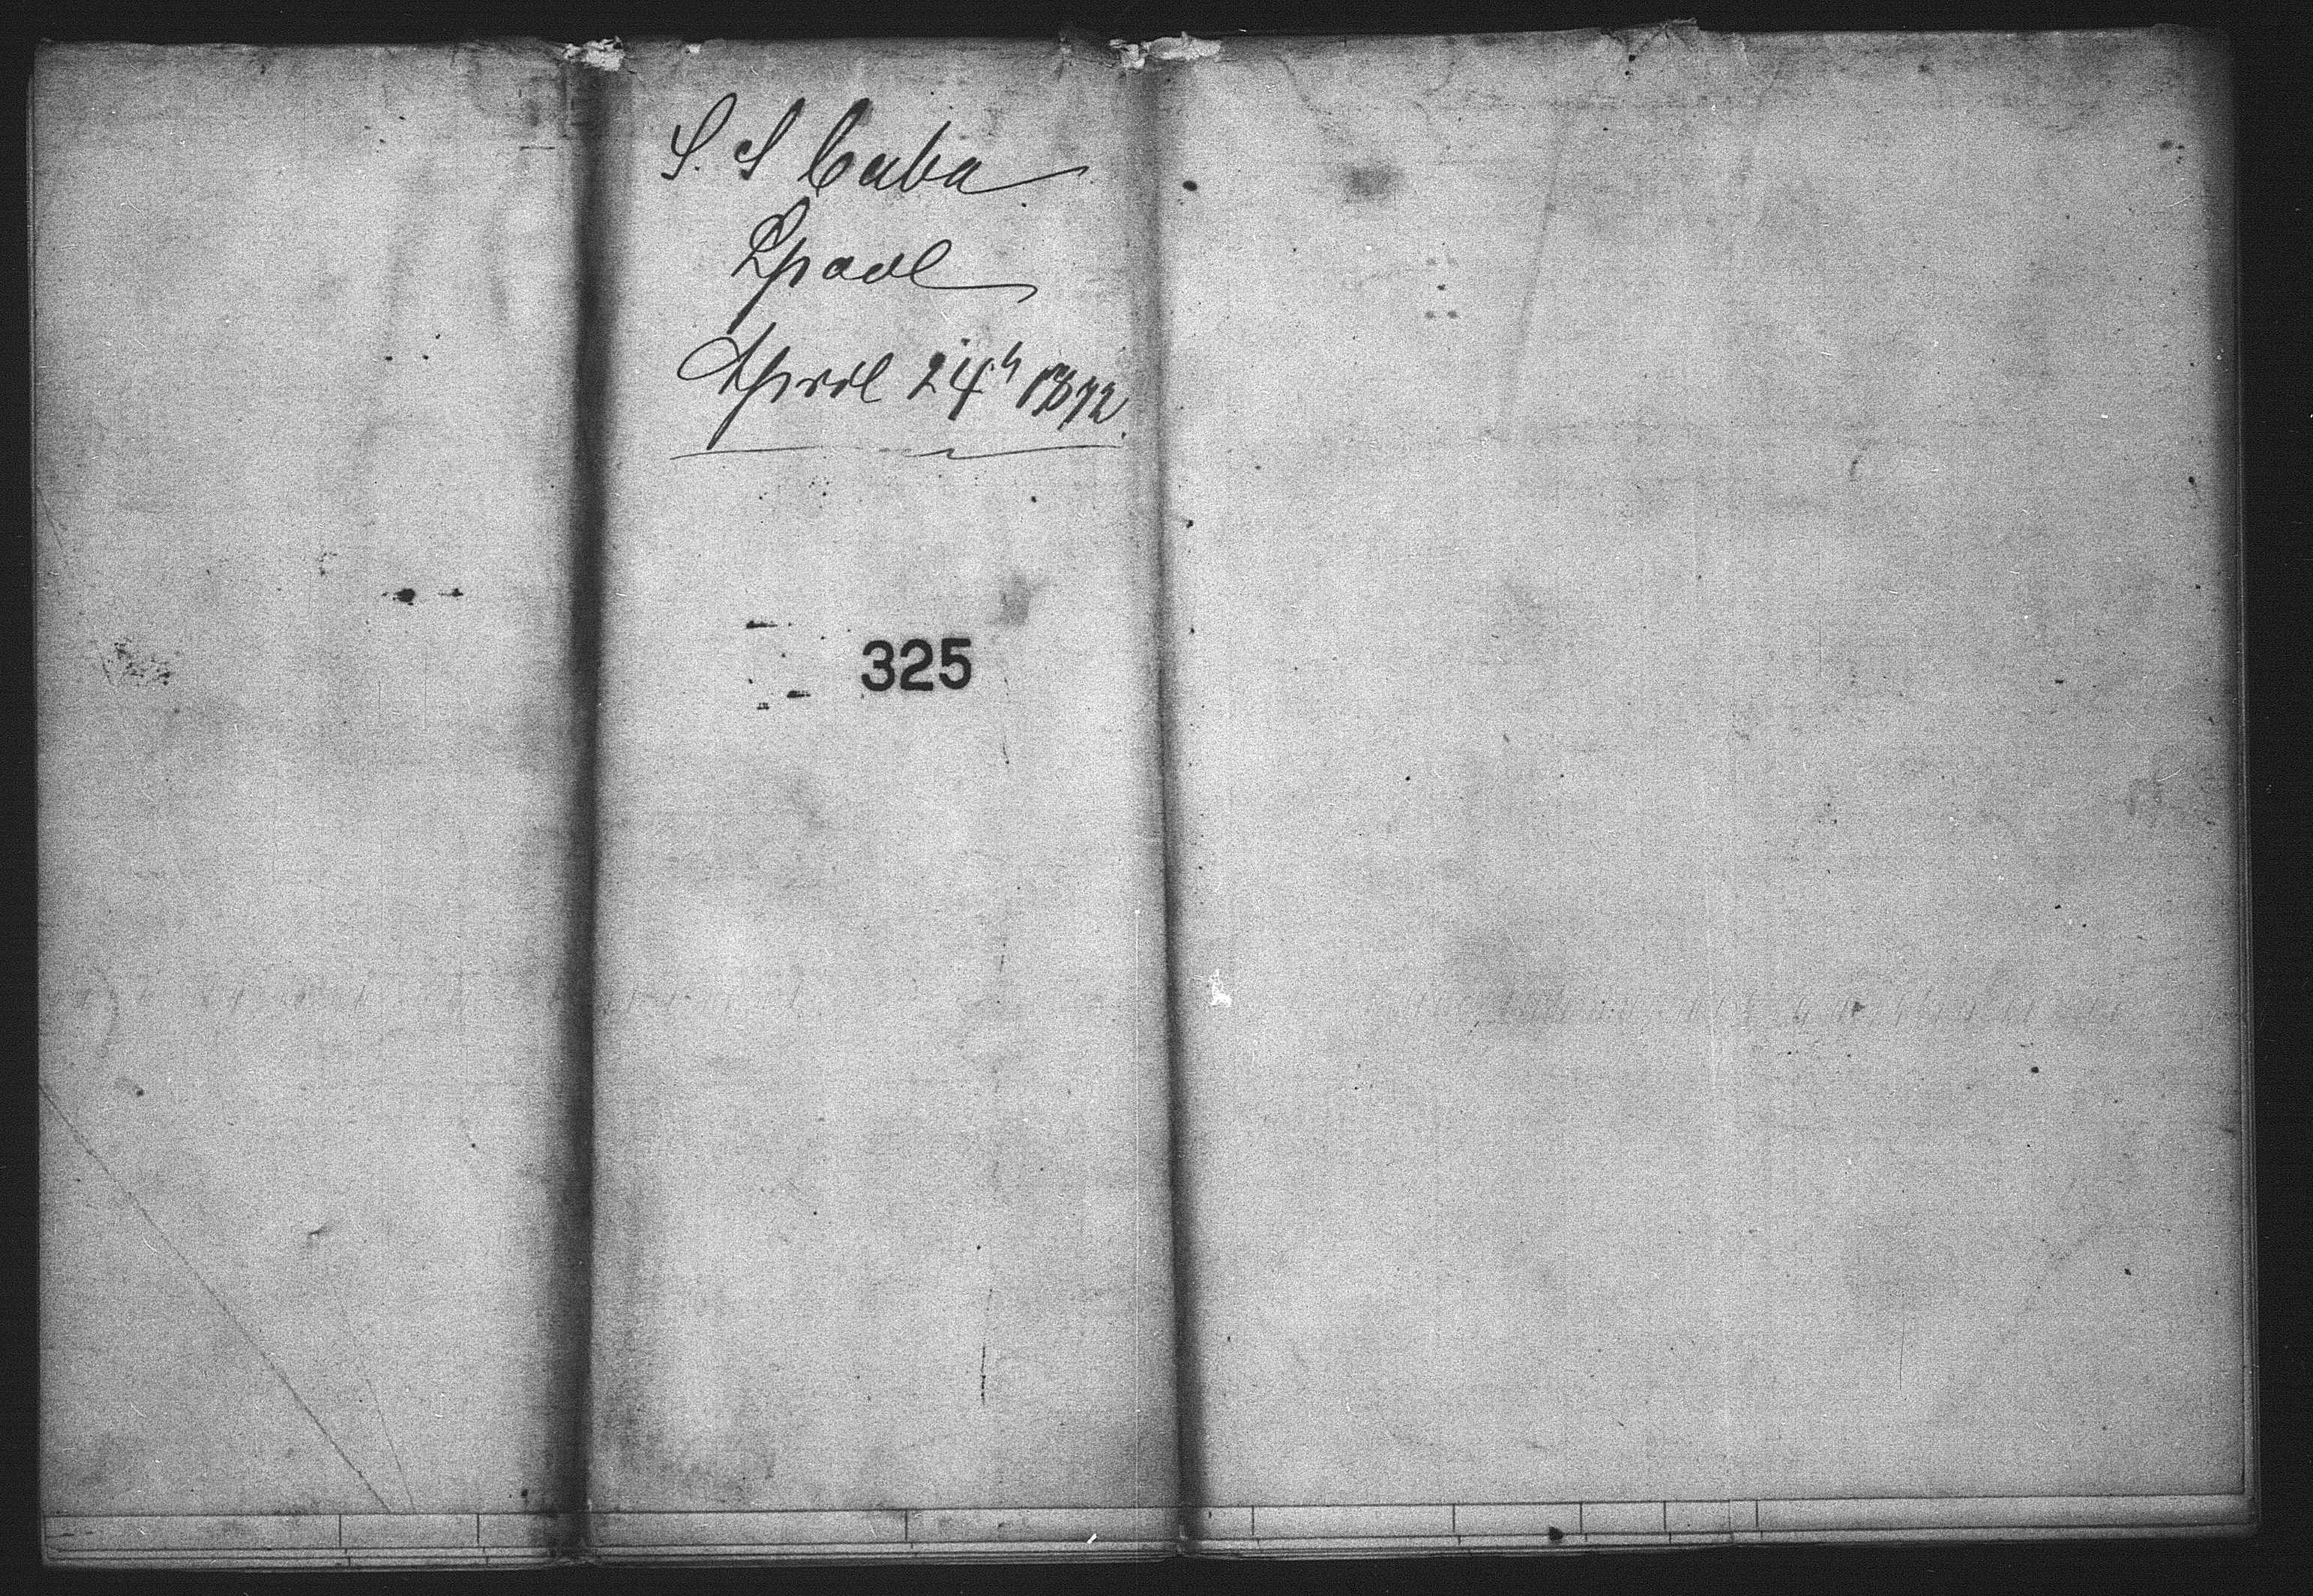 S. S Cuba
Lpool
April 24th 1872.
325